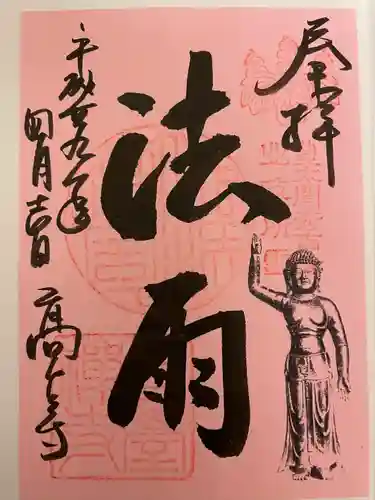 奉拝
法雨
平成廿九年
四月吉日
高台寺